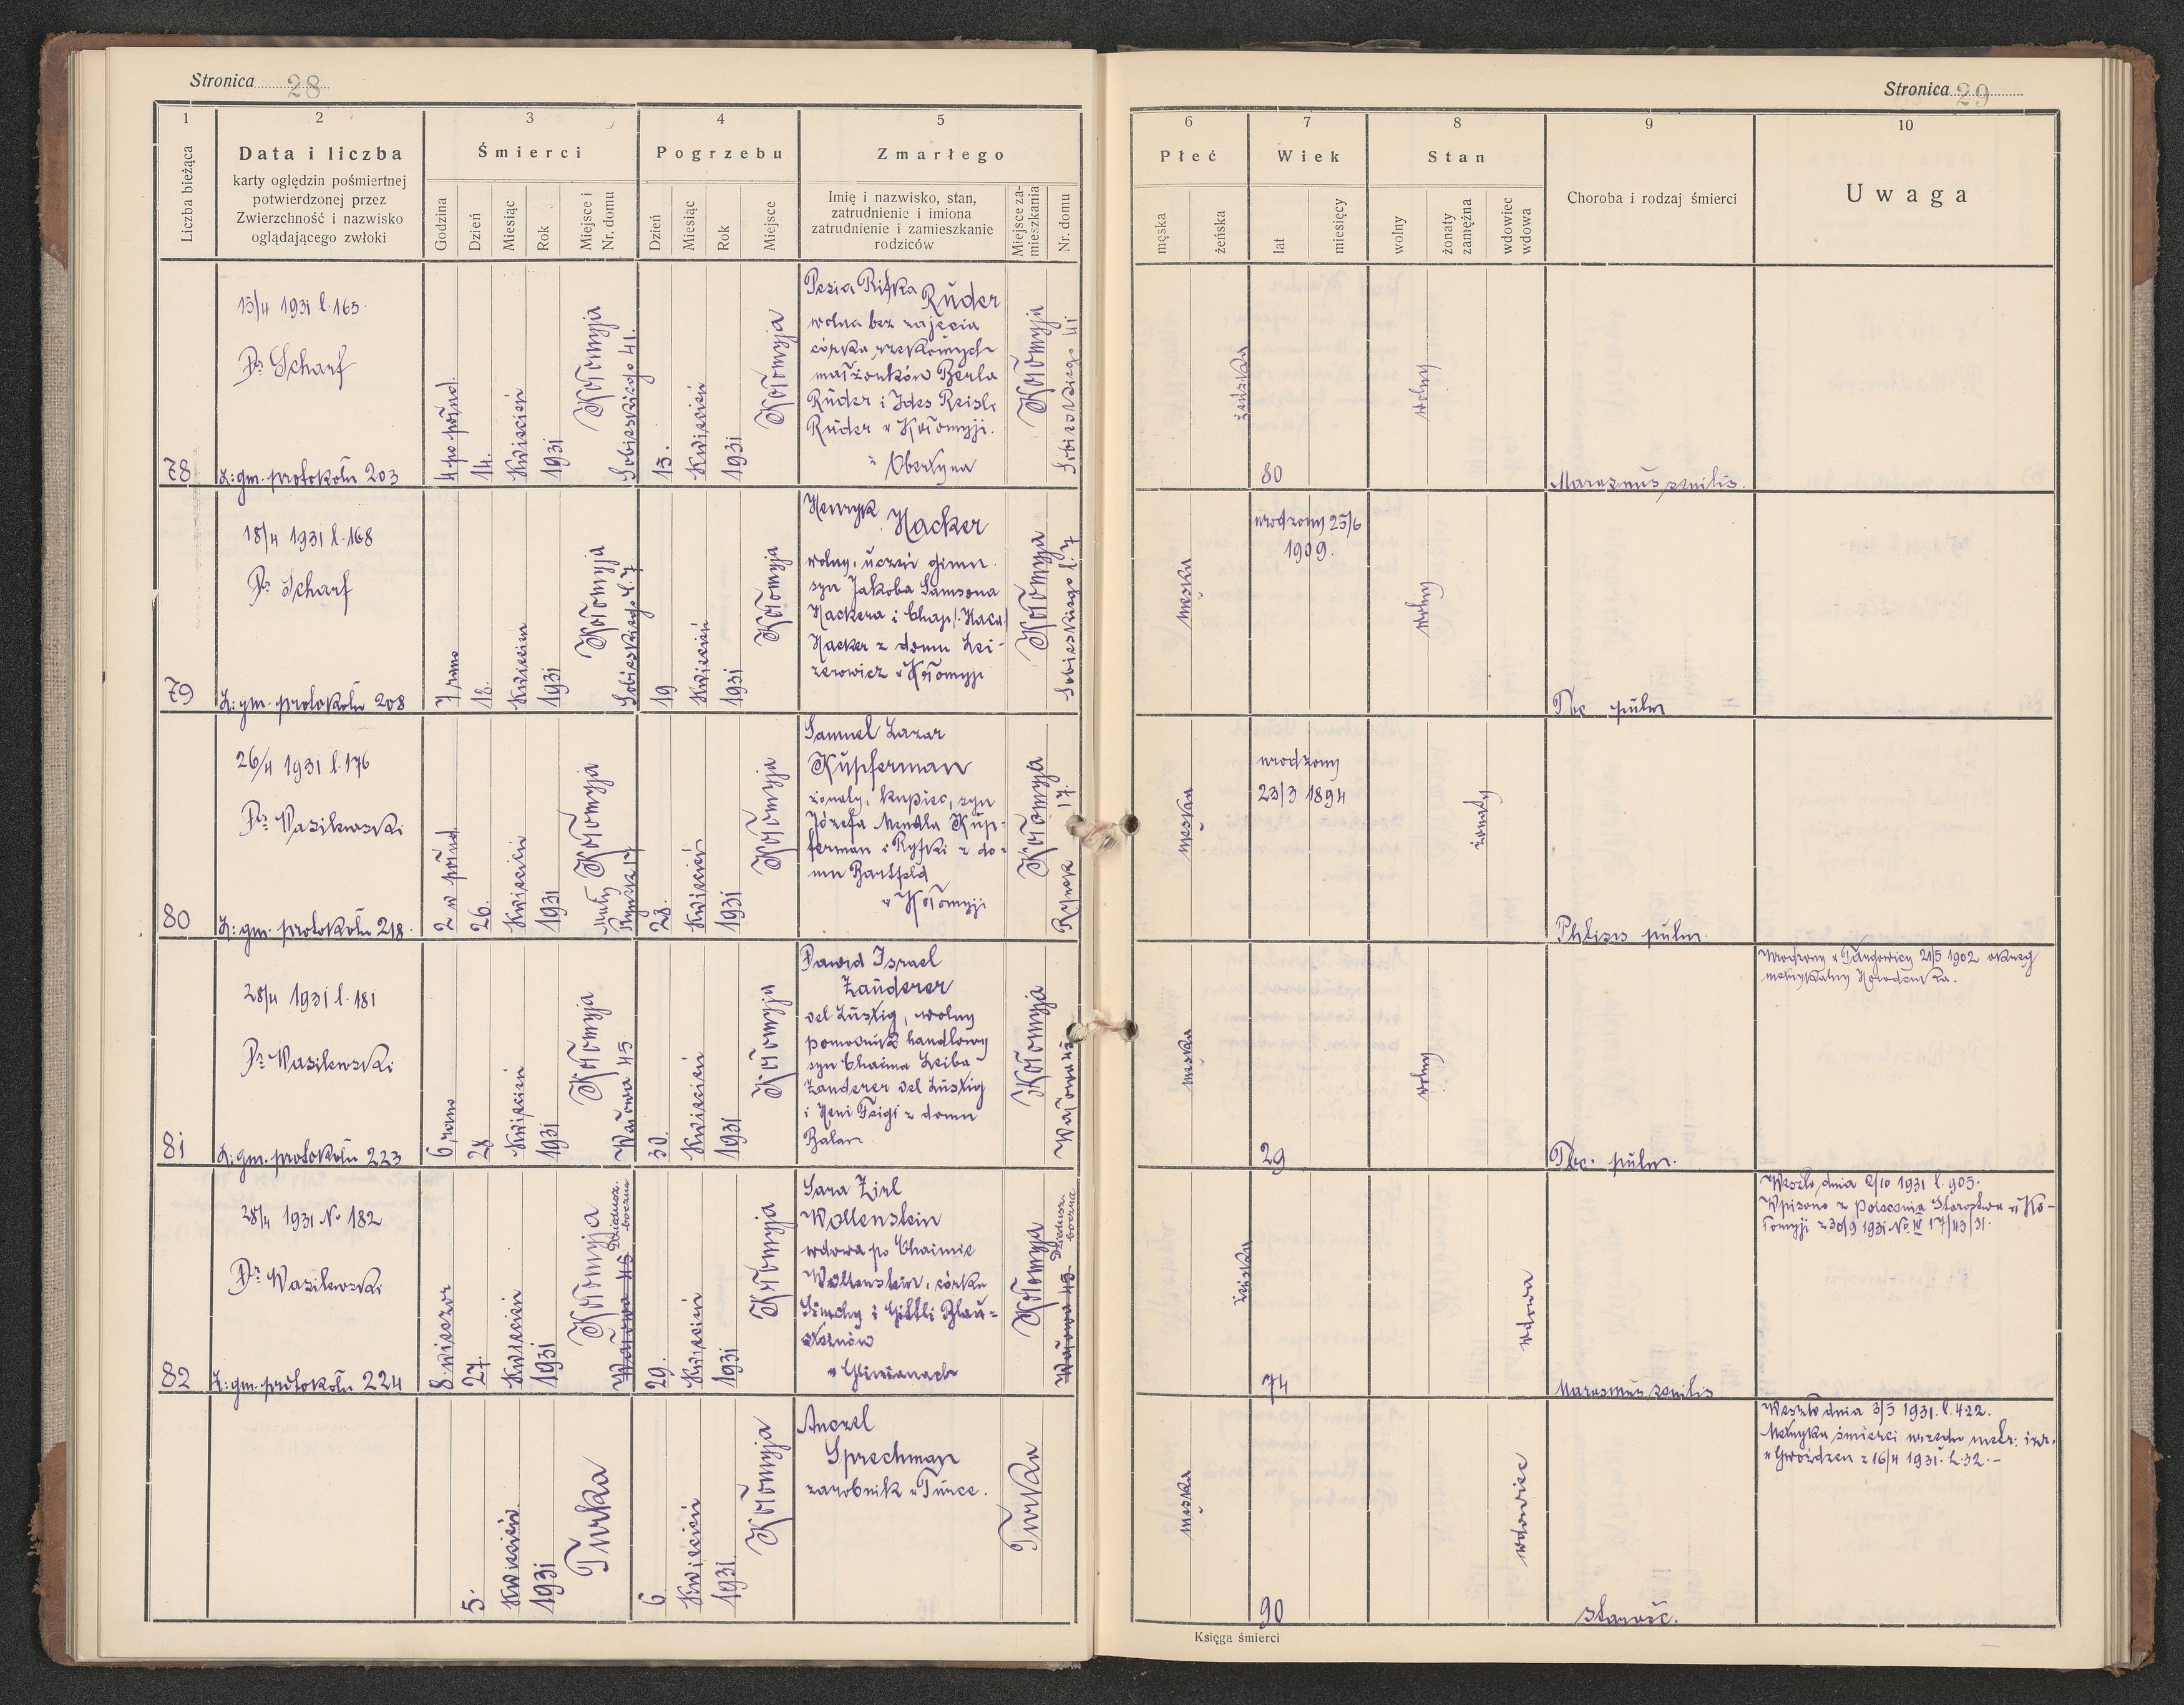 Stronica 28
1
2
3
4
5
Liczba bieżąca
Data i liczba
karty oględzin pośmiertnej
potwierdzonej przez
Zwierzchność i nazwisko
oglądającego zwłoki
Śmierci
Godzina
Dzień
Miesiąc
Rok
Miejsce i
Nr. domu
Pogrzebu
Dzień
Miesiąc
Rok
Miejsce
Zmarłego
Imię i nazwisko, stan,
zatrudnienie i imiona
zatrudnienie i zamieszkanie
rodziców
Miejsce za-
mieszkania
Nr. domu
78
15/4 1931 l. 165.
Dr Scharf
L: gm. protokołu 203
4 po połud.
14.
Kwiecień
1931
Kołomyja
Sobieskiego 41.
15.
Kwiecień
1931
Kołomyja
Pesia Rifka Ruder
wolna bez zajęcia
córka rzekomych
małżonków Berla
Ruder i Ides Reisli
Ruder w Kołomyji.
z Obertyna
Kołomyja
Sobieskiego 41
79
18/4 1931 l. 168
Dr Scharf
L: gm. protokołu 208
7 rano
18.
Kwiecień
1931
Kołomyja
Sobieskiego l. 7
19
Kwiecień
1931
Kołomyja
Henryk Hacker
wolny, uczeń gimn.
syn Jakoba Samsona
Hackera i Chaji
Hacker z domu Lei-
zerowicz w Kołomyji
Kołomyja
Sobieskiego l. 7
80
26/4 1931 l. 176
Dr Wasilewski
L: gm. protokołu 218.
2 w połud.
26.
Kwiecień
1931
Kołomyja
Rynek 17
28.
Kwiecień
1931
Kołomyja
Samuel Lazar
Kupferman
żonaty, kupiec, syn
Józefa Mendla Kup-
ferman i Ryfki z do-
mu Bartfeld
w Kołomyji
Kołomyja
Rynek 17.
81
28/4 1931 l. 181
Dr Wasilewski
L: gm. protokołu 223
6 rano
28
Kwiecień
1931
Kołomyja
Wałowa 45
30.
Kwiecień
1931
Kołomyja
Dawid Israel
Zauderer
vel Lustig, wolny
pomocnik handlowy
syn Chaima Leiba
Zauderer vel Lustig
i Heni Feigi z domu
Balan
Kołomyja
82
28/4 1931 No 182
Dr Wasilewski
L: gm. protokołu 224
8. wieczor
27.
Kwiecień
1931
Kołomyja
Wałowa 45
Dziedusz.
boczna
29.
Kwiecień
1931
Kołomyja
Sara Zirl
Wollenstein
wdowa po Chaimie
Wollenstein, córka
Simchy i Gittli Blau-
sternów
w Glinianach
Kołomyja
Wałowa 45.
Dziedusz.
boczna
5.
Kwiecień
1931
Turka
6
Kwiecień
1931.
Kołomyja
Anczel
Sprechman
zarobnik w Turce.
Turka
Stronica 29
6
7
8
9
10
Płeć
męska
żeńska
Wiek
lat
miesięcy
Stan
wolny
żonaty
zamężna
wdowiec
wdowa
Choroba i rodzaj śmierci
Uwaga
żeńska
80
wolny
Marasmus senilis.
męska
urodzony 25/6
1909.
wolny
Tbc pulm
męska
urodzony
23/3 1894
żonaty
Phtisis pulm.
męska
29
wolny
Tbc. pulm.
Urodzony w Targowicy 21/5 1902 okręg
metrykalny Horodenka.
żeńska
74
wdowa
Marasmus senilis
Weszło dnia 2/10 1931 l. 905.
Wpisano z polecenia Starostwa w Ko-
łomyji z 30/9 1931 No IV 17/43/31.
męska
90
wdowiec
starość.
Weszło dnia 3/5 1931. l. 422.
Metryka śmierci urzędu metr: izr.
w Gwoźdzcu z 16/4 1931. L. 32. —
Księga śmierci